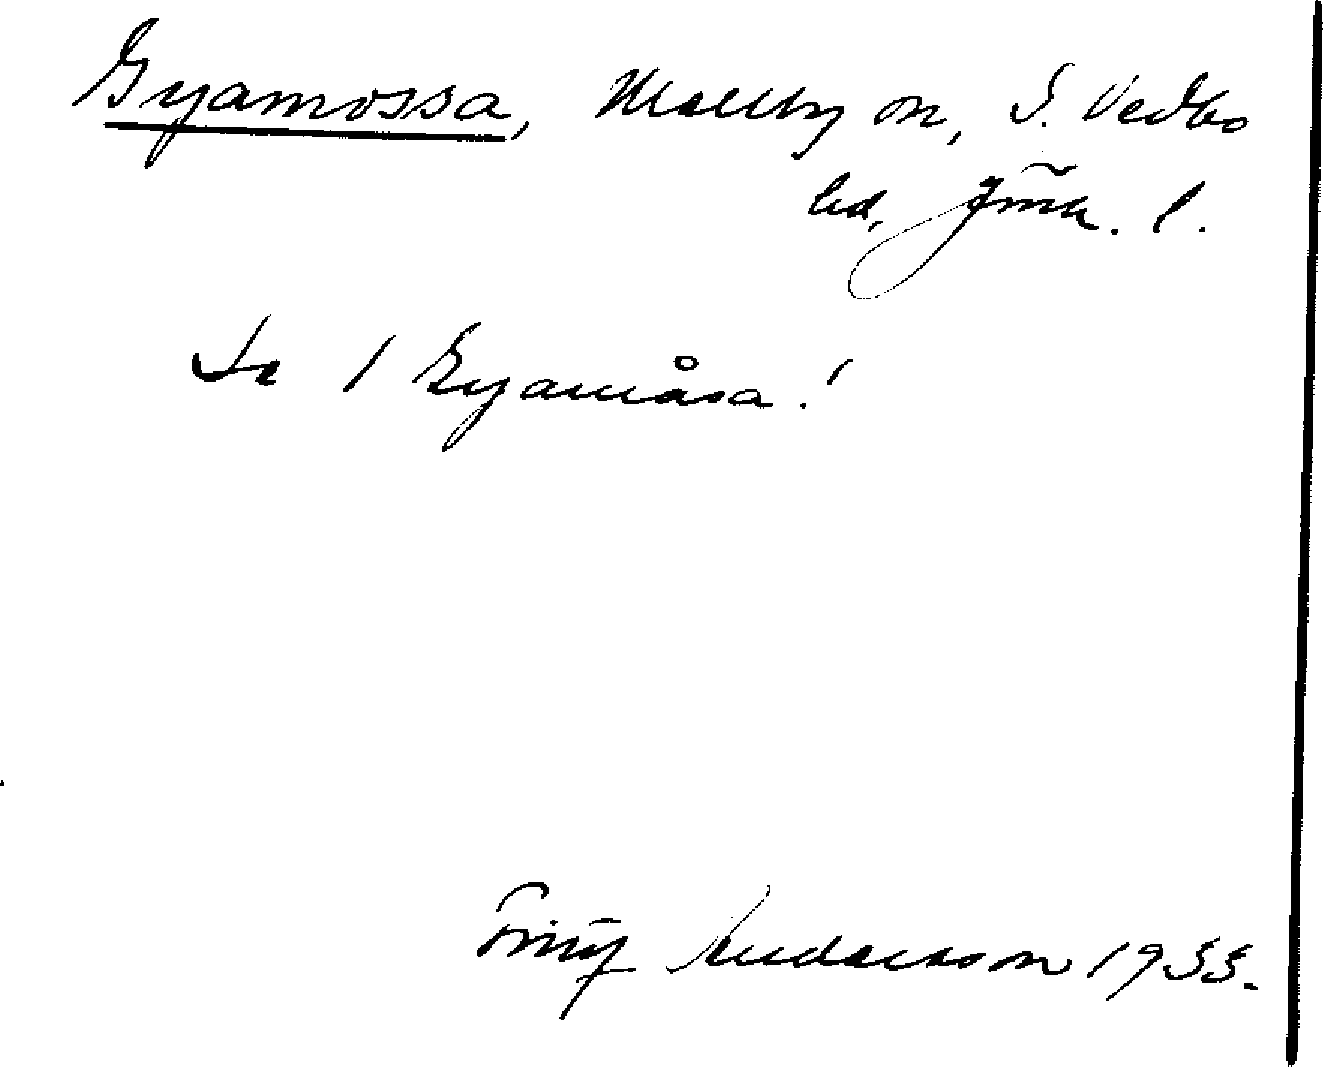 Gyamossa, Mellby sn, S. Vedbo
hd, Jmk. l.
Se 1 Gyamåsa!
Fritz Andersson 1955.